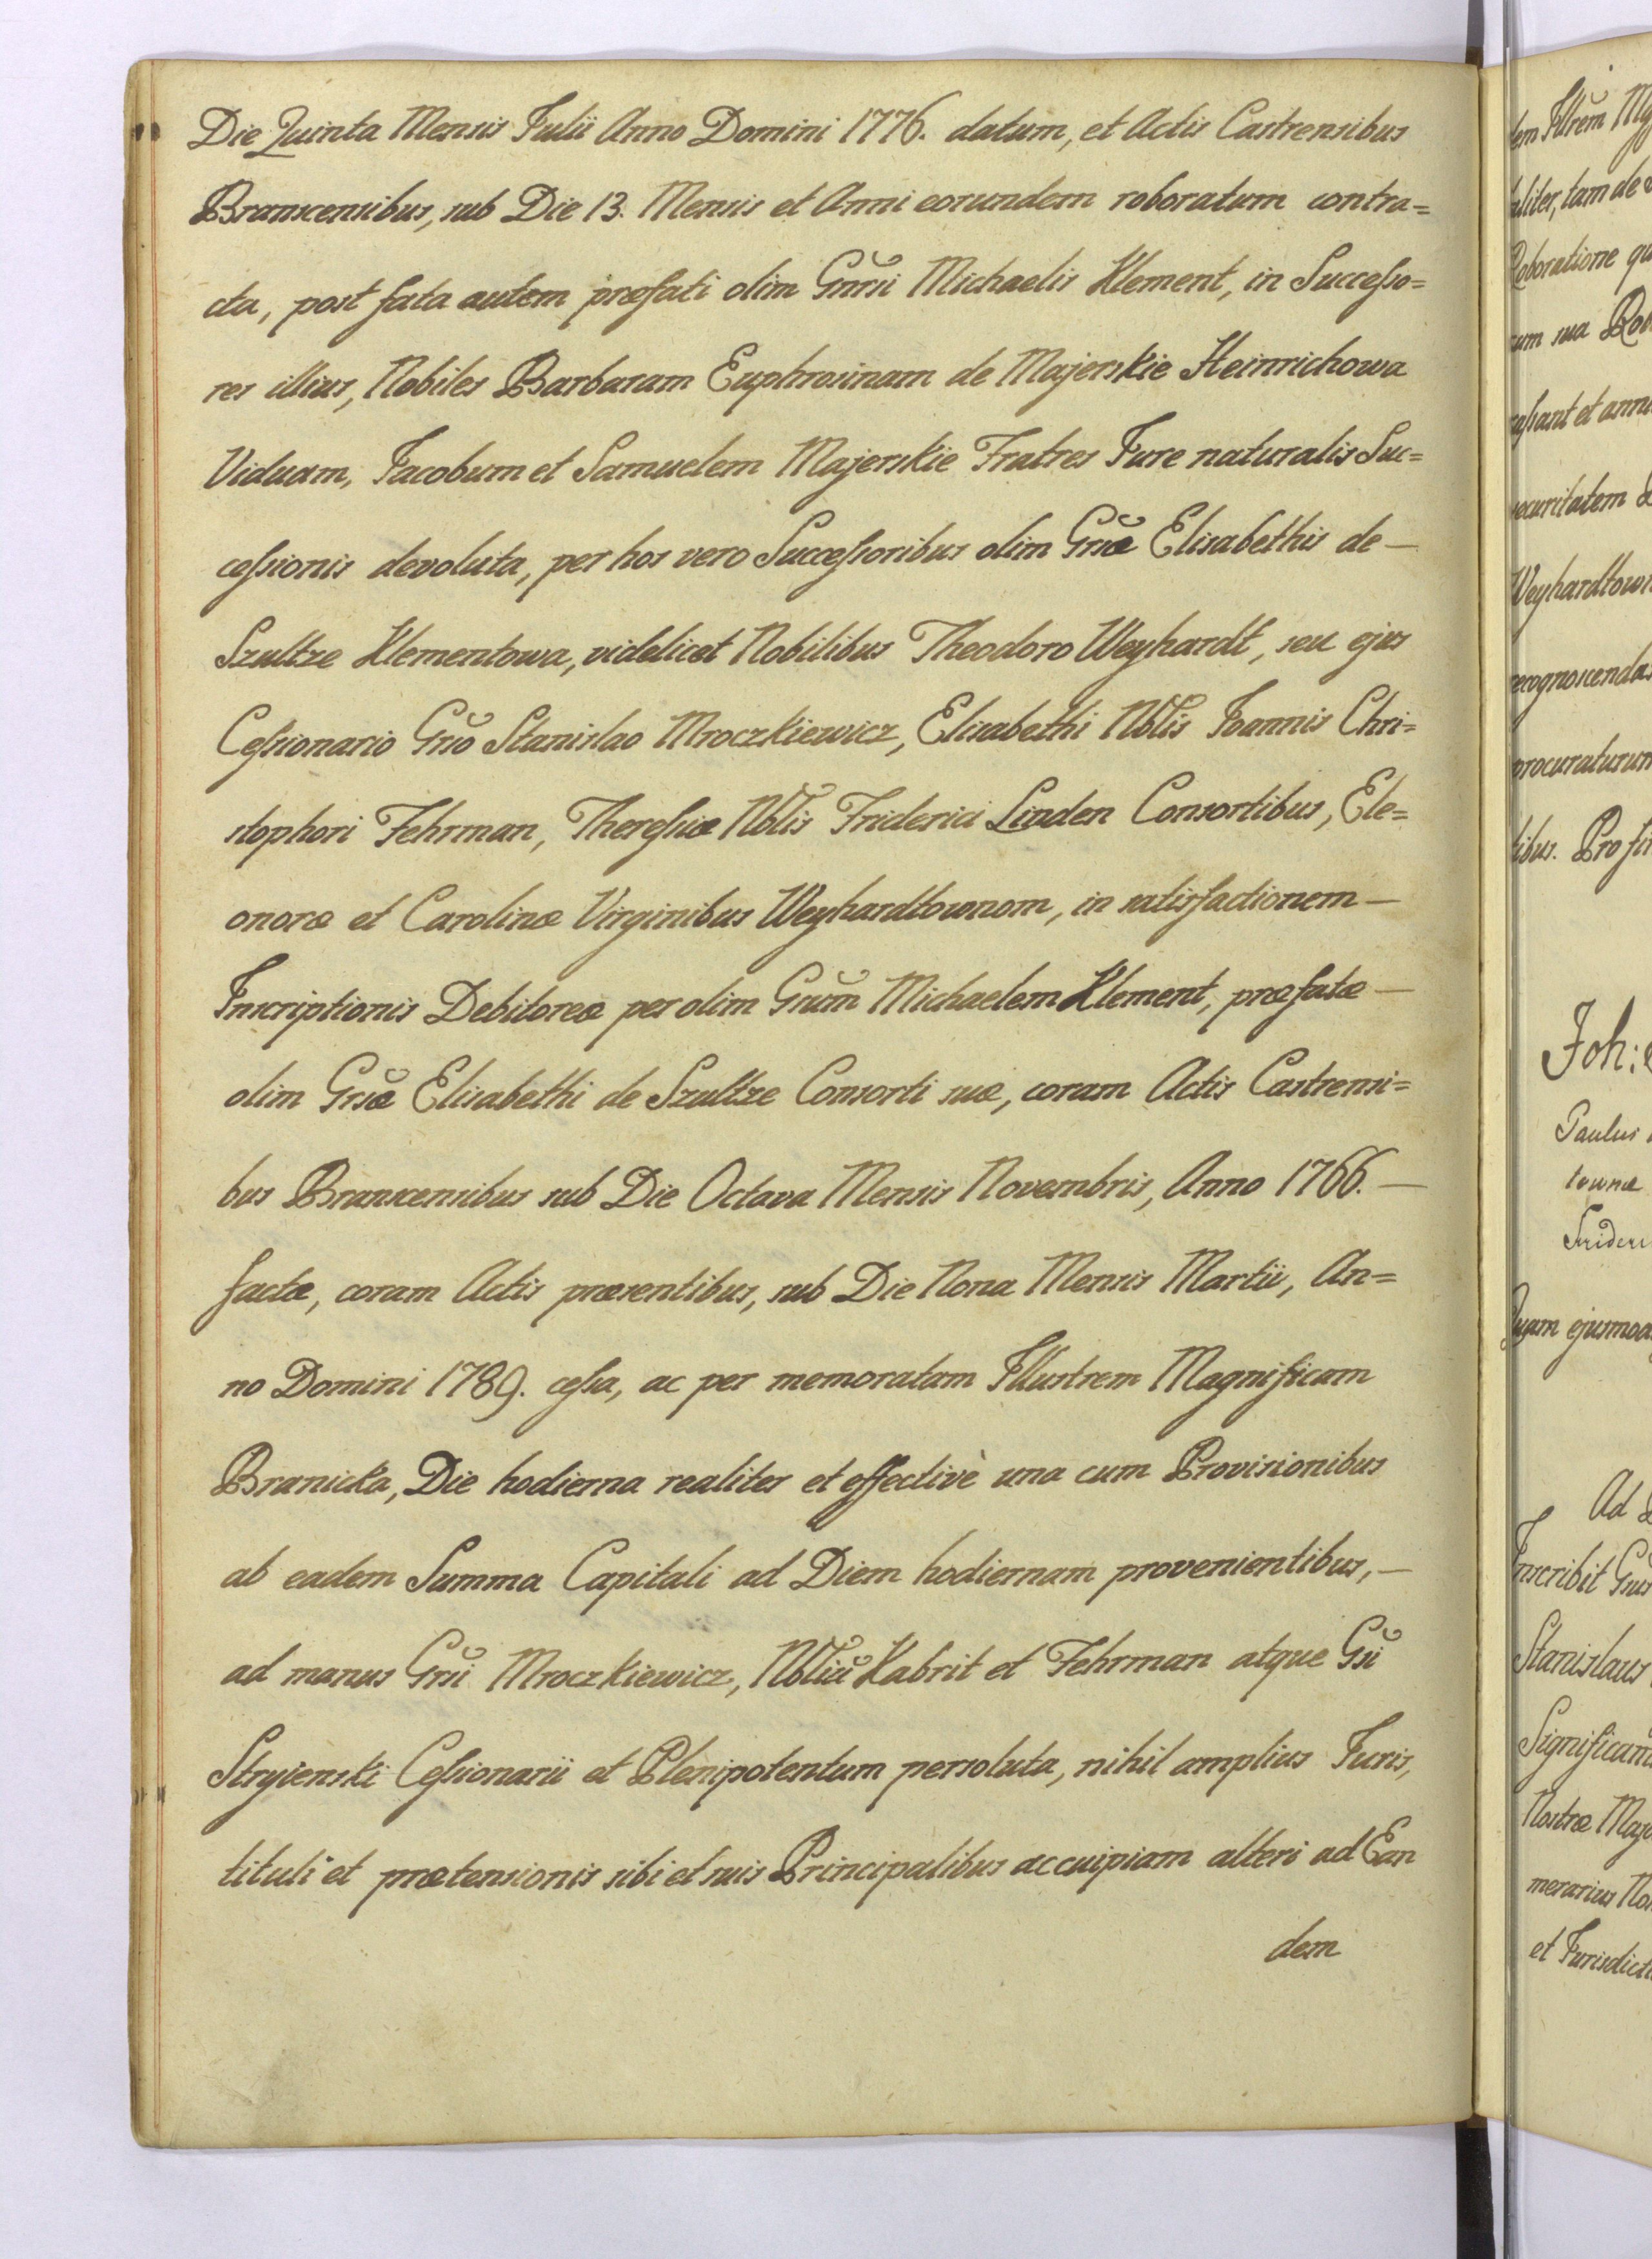 Die Quinta Mensis Julii Anno Domini 1776. datum, et Actis Castrensibus
Branscensibus, sub Die 13. Mensis et Anni eorundem roboratum contra=
cta, post fata autem præfati olim Gnrsi Michaelis Klement, in Successo=
res illius, Nobiles Barbaram Euphrosinam de Majerskie Heinrichowa
Viduam, Jacobum et Samuelem Majerskie Fratres Jure naturalis Suc=
cessionis devoluta, per hos vero Successoribus olim Grsæ Elisabethis de —
Szultze Klementowa, videlicet Nobilibus Theodoro Weyhardt, seu ejus
Cessionario Grso Stanislao Mroczkiewicz, Elisabethi Nblis Joannis Chri=
stophori Fehrman, Theressiæ Nblis Friderici Linden Consortibus, Ele=
onoræ et Carolinæ Virginibus Weyhardtownom, in satisfactionem —
Inscriptionis Debitoreæ per olim Grsum Michaelem Klement, præfatæ —
olim Grsæ Elisabethi de Szultze Consorti suæ, coram Actis Castrensi=
bus Branscensibus sub Die Octava Mensis Novembris, Anno 1766. —
factæ, coram Actis præsentibus, sub Die Nona Mensis Martii, An=
no Domini 1789. cessa, ac per memoratam Illustrem Magnificam
Branicka, Die hodierna realiter et effectivè una cum Provisionibus
ab eadem Summa Capitali ad Diem hodiernam provenientibus, —
ad manus Grsi Mroczkiewicz, Nbliū Kabrit et Fehrman atque Gsi
Stryienski Cessionarii et Plenipotentum persoluta, nihil amplius Juris,
tituli et prætensionis sibi et suis Principalibus ac cuipiam alteri ad Ean
dem
Joh:
Paulus
townæ
Frideri
Weyhardtown
recognoscendam
procuraturum
Ad
Inscribit
Stanislaus
Nostræ
merarius